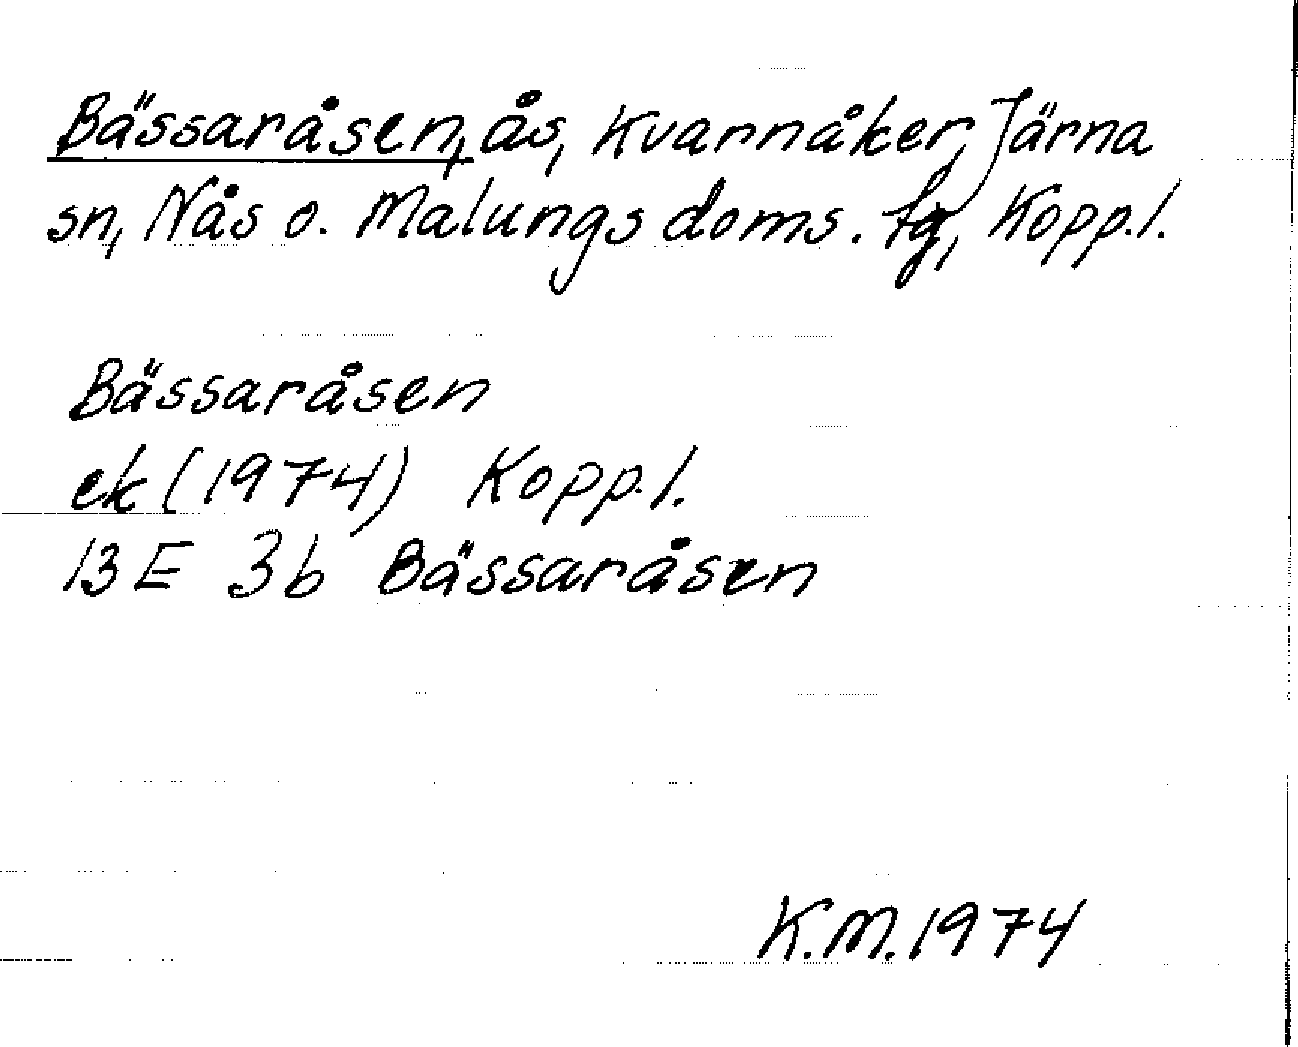 Bässaråsen, ås, Kvarnåker, Järna
sn, Nås o. Malungs doms. tg, Kopp.l.
Bässaråsen
ek (1974) Kopp.l.
13E 3b Bässaråsen
K.M.1974